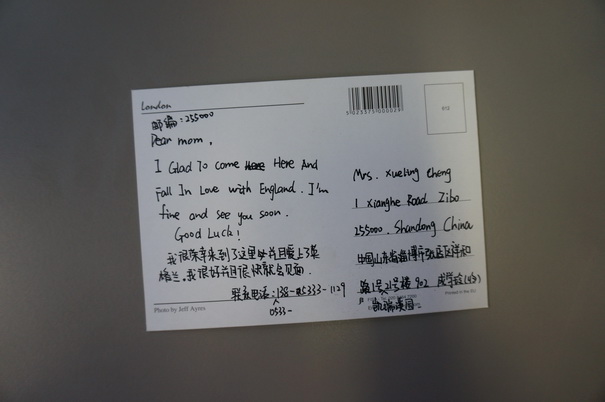 London
邮编:255000
Dear mom,
I Glad To come Here And
Fall In Love with England. I'm
fine and see you soon.
Good Luck!
我很荣幸来到了这里并且爱上了英
格兰。我很好并且很快就会见面.
联系电话:138-05333-1129
0533-
Photo by Jeff Ayres
5023375000029
Mrs. Xueling Cheng
1 Xianghe Road Zibo
255000. Shandong China
中国山东省淄博市张店区祥和
路1号21号楼902
Printed in the EU